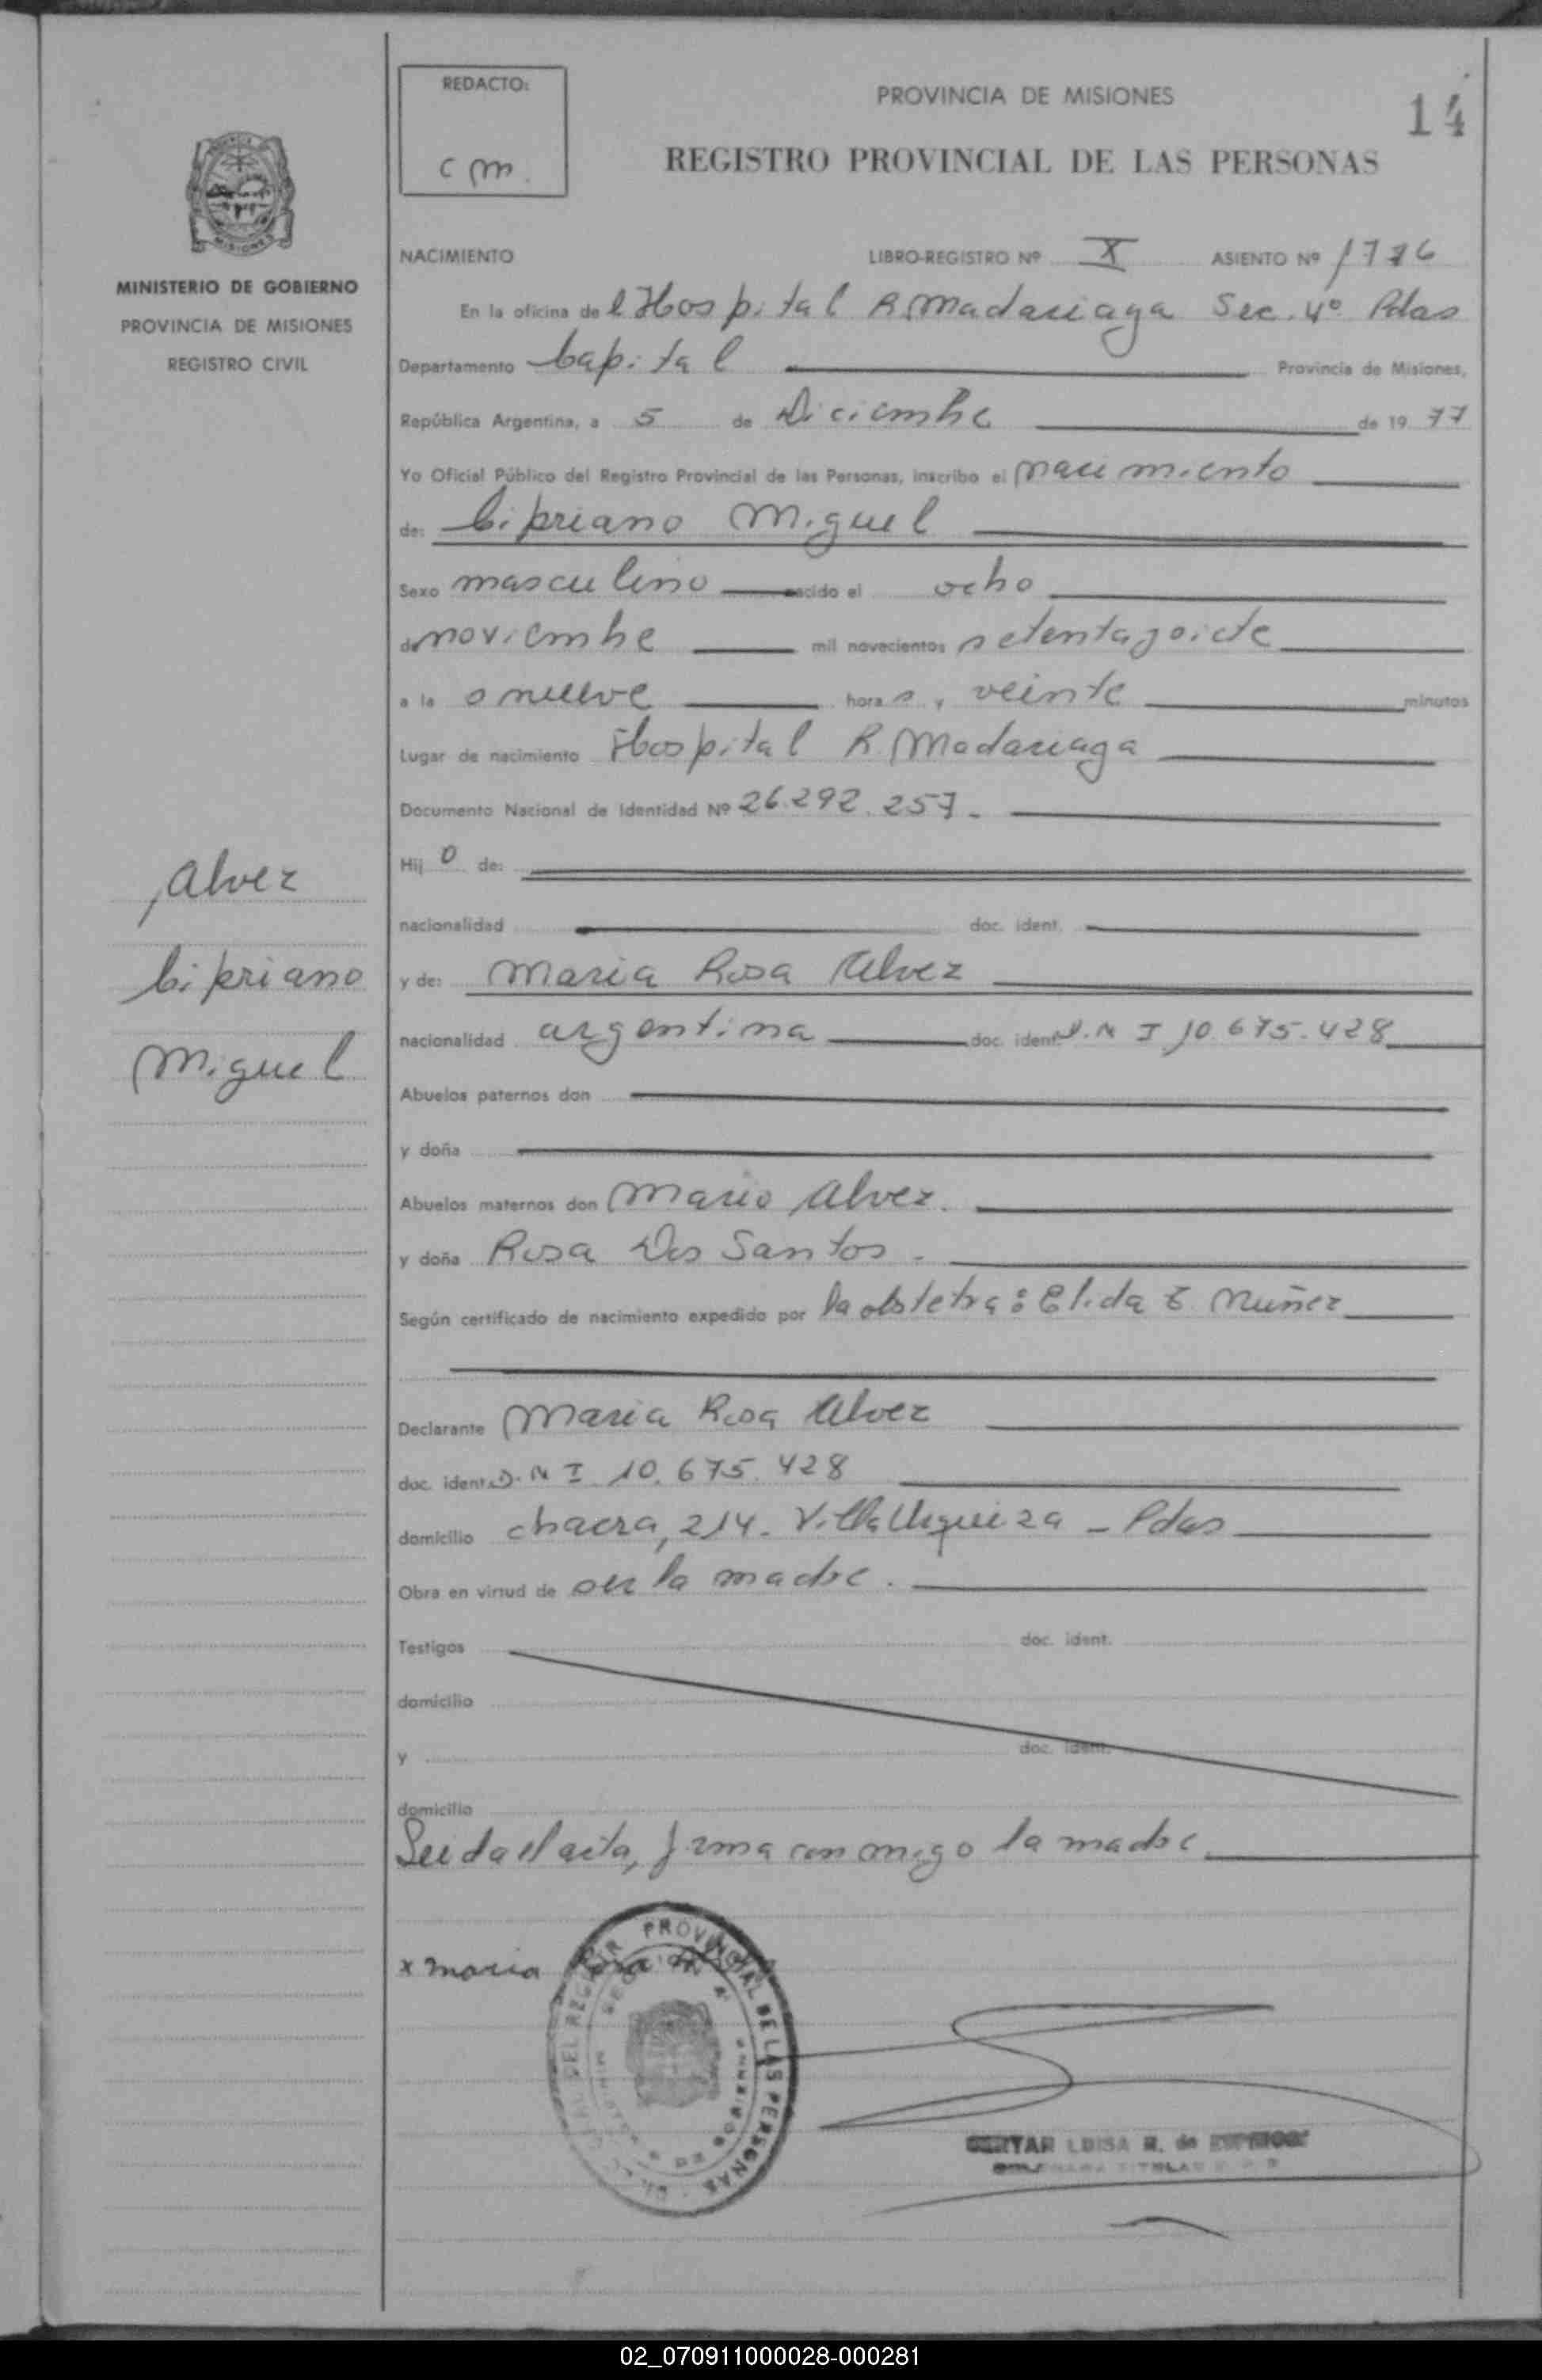 REDACTO:
c m.
PROVINCIA DE MISIONES
14
REGISTRO PROVINCIAL DE LAS PERSONAS
MISIONES
MINISTERIO DE GOBIERNO
PROVINCIA DE MISIONES
REGISTRO CIVIL
NACIMIENTO LIBRO-REGISTRO Nº X ASIENTO Nº
En la oficina del Hospital R. Madariaga Sec. 4º Pdas
Departamento Capital Provincia de Misiones,
República Argentina, a 5 de Diciembre de 19 77
Yo Oficial Público del Registro Provincial de las Personas, inscribo el nacimiento
de: Cipriano Miguel
Sexo masculino nacido el ocho
de noviembre mil novecientos setentaysiete
a la s nueve hora s y veinte minutos
Lugar de nacimiento Hospital R. Madariaga
Documento Nacional de Identidad Nº 26.292.257.
Hij o de:
nacionalidad doc. ident.
y de: Maria Rosa Alvez
nacionalidad argentina doc. ident. D.N I 10.675.428
Abuelos paternos don
y doña
Abuelos maternos don Mario Alvez.
y doña Rosa Dos Santos.
Según certificado de nacimiento expedido por la obstetra: Elida E. Nuñez
Declarante Maria Rosa Alvez
doc. ident. D.N I 10.675.428
domicilio chacra, 214. Villa Urquiza - Pdas
Obra en virtud de ser la madre.
Testigos doc. ident.
domicilio
y doc. ident.
domicilio
Leida el acta, firma conmigo la madre.
Alvez
Cipriano
Miguel
x maria Rosa
PROVINCIAL DE LAS PERSONAS
LUISA R. de
02_070911000028-000281